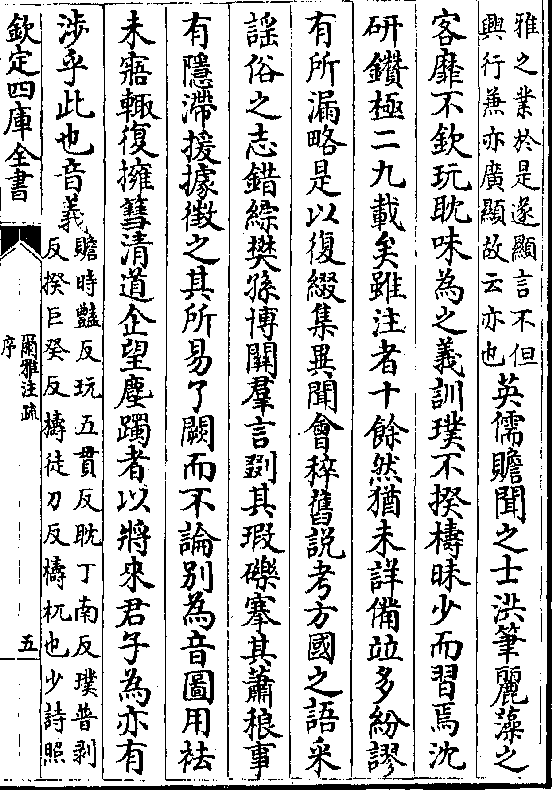 雅之業於是遂顯言不但
興行兼亦廣顯故云亦也
英儒贍聞之士洪筆麗藻之
客靡不欽玩耽味為之義訓璞不揆檮昧少而習焉沈
研鑽極二九載矣雖注者十餘然猶未詳備竝多紛謬
有所漏略是以復綴集異聞會稡舊説考方國之語采
謡俗之志錯綜樊孫博關羣言剟其瑕礫搴其蕭稂事
有隱滯援據徴之其所易了闕而不論別為音圖用袪
未寤輙復擁篲清道企望塵躅者以將來君子為亦有
涉乎此也音義
贍時豔反玩五貫反耽丁南反璞普剥
反揆巨癸反檮徒刀反檮杌也少詩照
欽定四庫全書
爾雅注疏
序
五